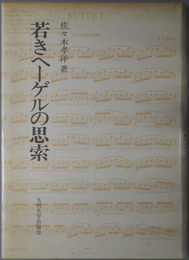 SUITE I
佐々木孝洋 著
若きヘーゲルの思索
九州大学出版会